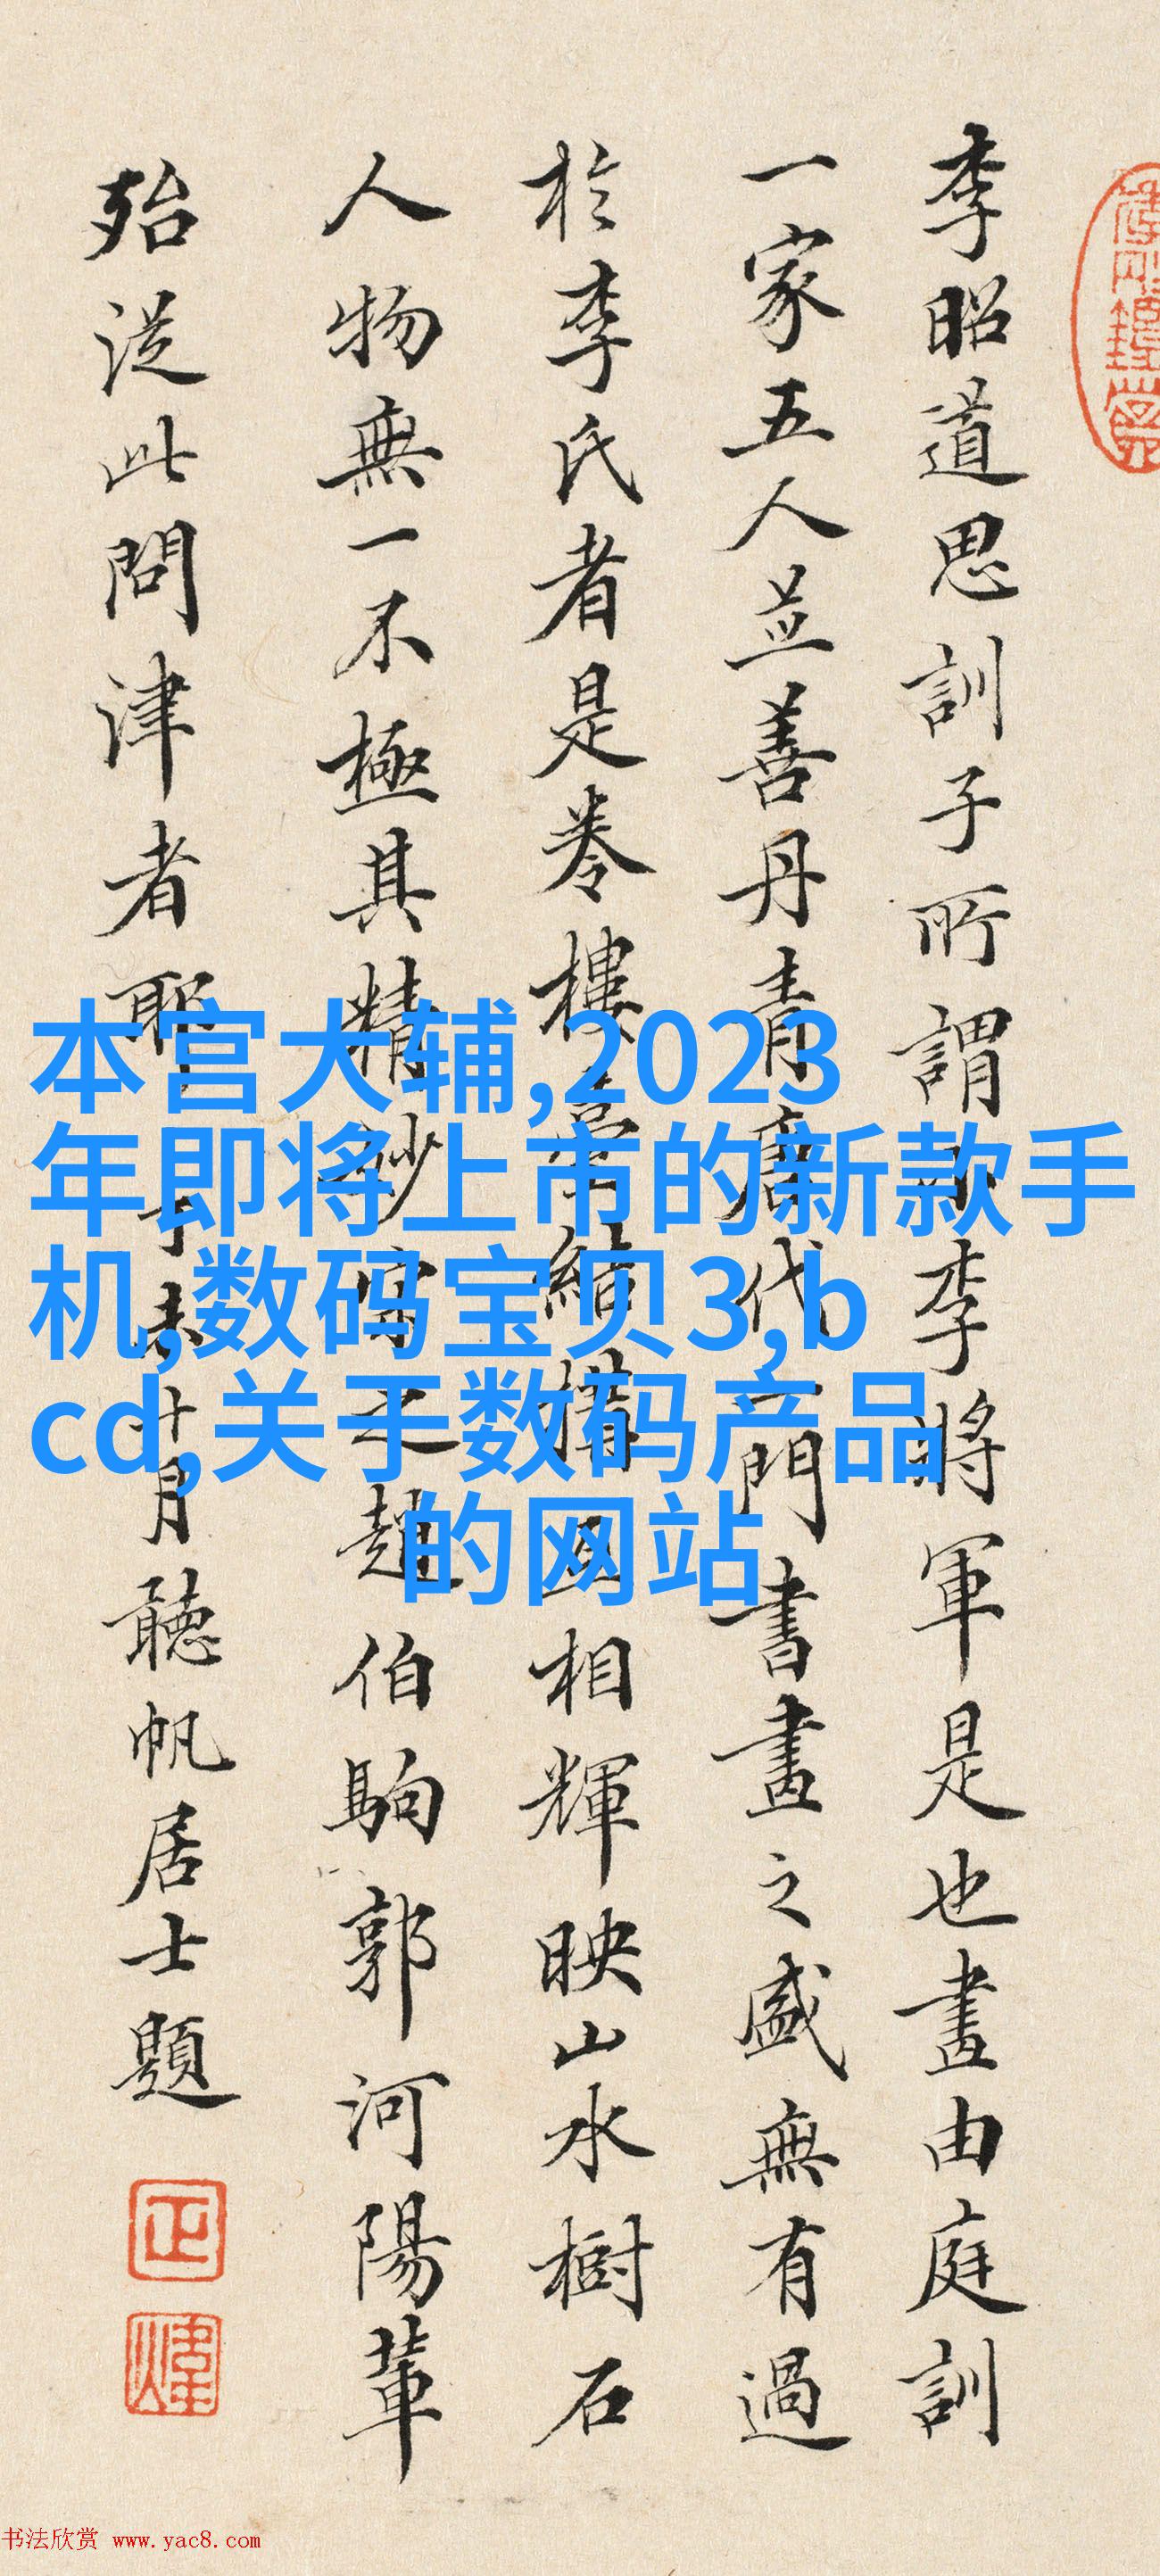 李昭道思訓子所謂小李將軍是也畫由庭訓
一家五人並善丹青唐代一門書畫之盛無有過
於李氏者是卷樓臺結構互相輝映山水樹石
人物無一不極其精妙宋之趙伯駒郭河陽輩
殆從此問津者耶
十月聽帆居士題
本宫大辅,2023
年即将上市的新款手
机,数码宝贝3,b
cd,关于数码产品
的网站
书法欣赏 www.yac8.com